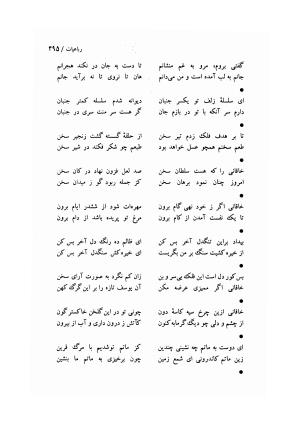 رباعیات / ۴۹۵
گفتی بروم، مرو به غم منشانم    تا دست به جان در نکند هجرانم
جانم به لب آمده است و من می‌دانم    هان تا نروی تا نه برآید جانم
•
ای سلسلهٔ زلف تو یکسر جنبان    دیوانه شدم سلسله کمتر جنبان
دارم سر آنکه با تو در بازم جان    گر هست سر منت سری در جنبان
•
تا بر هدف فلک زدم تیر سخن    از حلقهٔ گسسته گشت زنجیر سخن
طعم سخنم همچو عسل خواهد بود    طبعم چو شکر فکند در شیر سخن
•
خاقانی را که هست سلطان سخن    صد لعل فزون نهاد در کان سخن
امروز چنان نمود برهان سخن    کز جمله ربود گو ز میدان سخن
•
خاقانی اگر ز خود نهی گام برون    مهره‌ات شود از ششدر ایام برون
تا یک نفست آمدن از کام برون    مرغ تو پریده باشد از دام برون
•
بیداد براین تنگدل آخر بس کن    ای ظالم ده رنگ دل آخر بس کن
از خیره کشیت سنگ بر من بگریست    ای خیره‌کش سنگدل آخر بس کن
•
بس کور دل است این فلک بی‌سر و بن    زان کم نگرد به صورت آرای سخن
خاقانی اگر ممیزی عرضه مکن    آن یوسف تازه را بر این گرگ کهن
•
خاقانی ازین چرخ سیه کاسهٔ دون    چونی تو در این گلخن خاکستر گون
از چشم و دلی چو دیگ گرمابه کنون    کآتش ز درون داری و آب از بیرون
•
ای دوست به ماتم چه نشینی چندین    کز ماتم نوشدیم با مرگ قرین
زین ماتم کاندرونی ای شمع زمین    چون برخیزی به ماتم ما بنشین
•